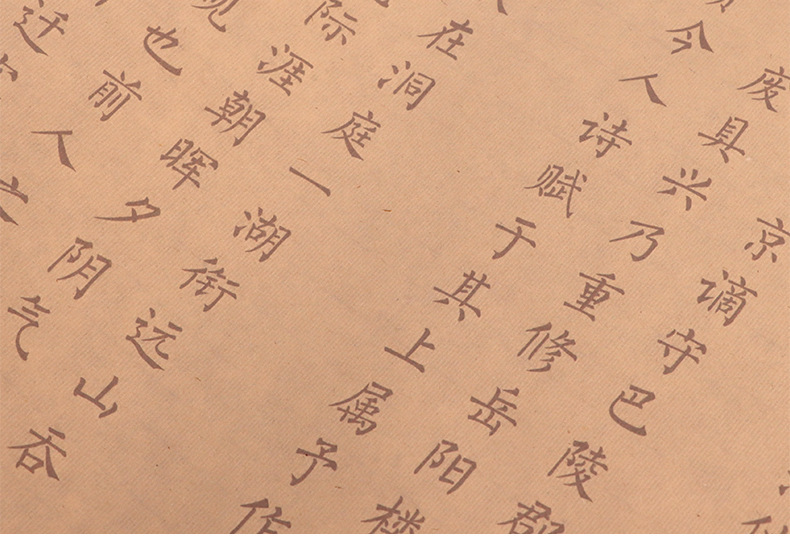 京谪守巴陵郡
废具兴乃重修岳阳楼
今人诗赋于其上属予作
在洞庭一湖衔远山吞
际涯朝晖夕阴气
观也前人
迁